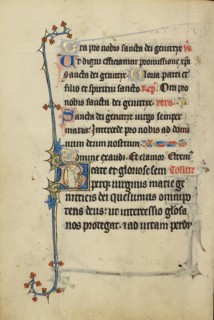 Ora pro nobis sancta dei genitrix
Ut digni efficiamur promissione xpi
sancta dei genitrix Gloria patri et
filio et spiritui sancto Rep. Ora pro
nobis sancta dei genitrix vers.
Sancta dei genitrix virgo semper
maria Intercede pro nobis ad domi
num deum nostrum
Domine exaudi Et clamor Orem Collecte
Beate et gloriose sem
perq; virginis marie ge
nitricis dei quesumus omnipo
tens deus ut intercessio gloriosa
nos protegat et ad vitam perdu